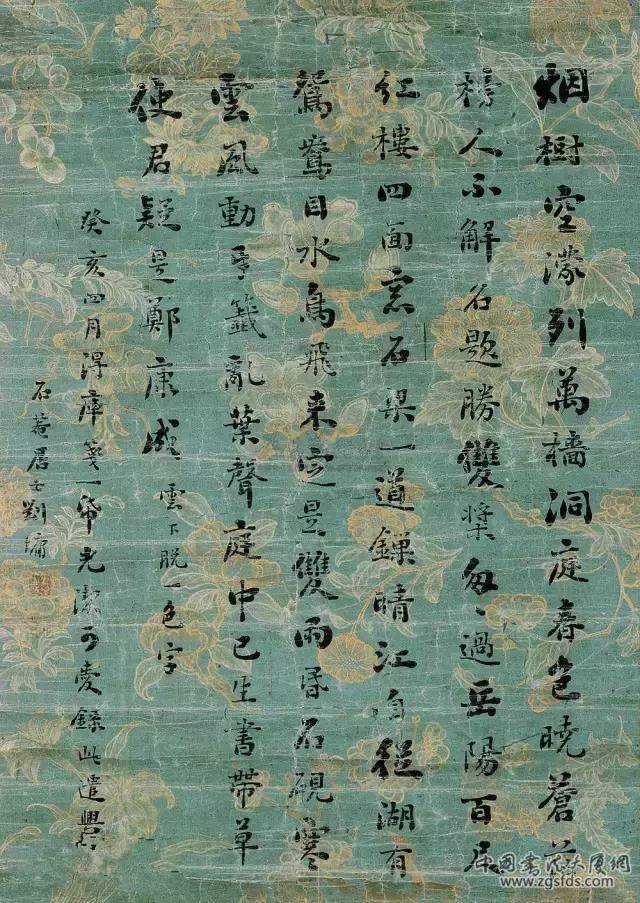 烟樹空濛列萬檣洞庭春色曉蒼蒼
榜人不解名題勝雙槳匆〻過岳陽百尺
紅樓四面窓石梁一道鏁晴江自從湖有
鴛鴦目水鳥飛來定是雙雨昏石硯寒
雲風動牙籤亂葉聲庭中已生書帶草
使君疑是鄭康成 雲下脫一色字
癸亥四月得庫箋一帋光潔可愛錄此遣興
石菴居士劉墉
中国書法大厦網
www.zgsfds.com